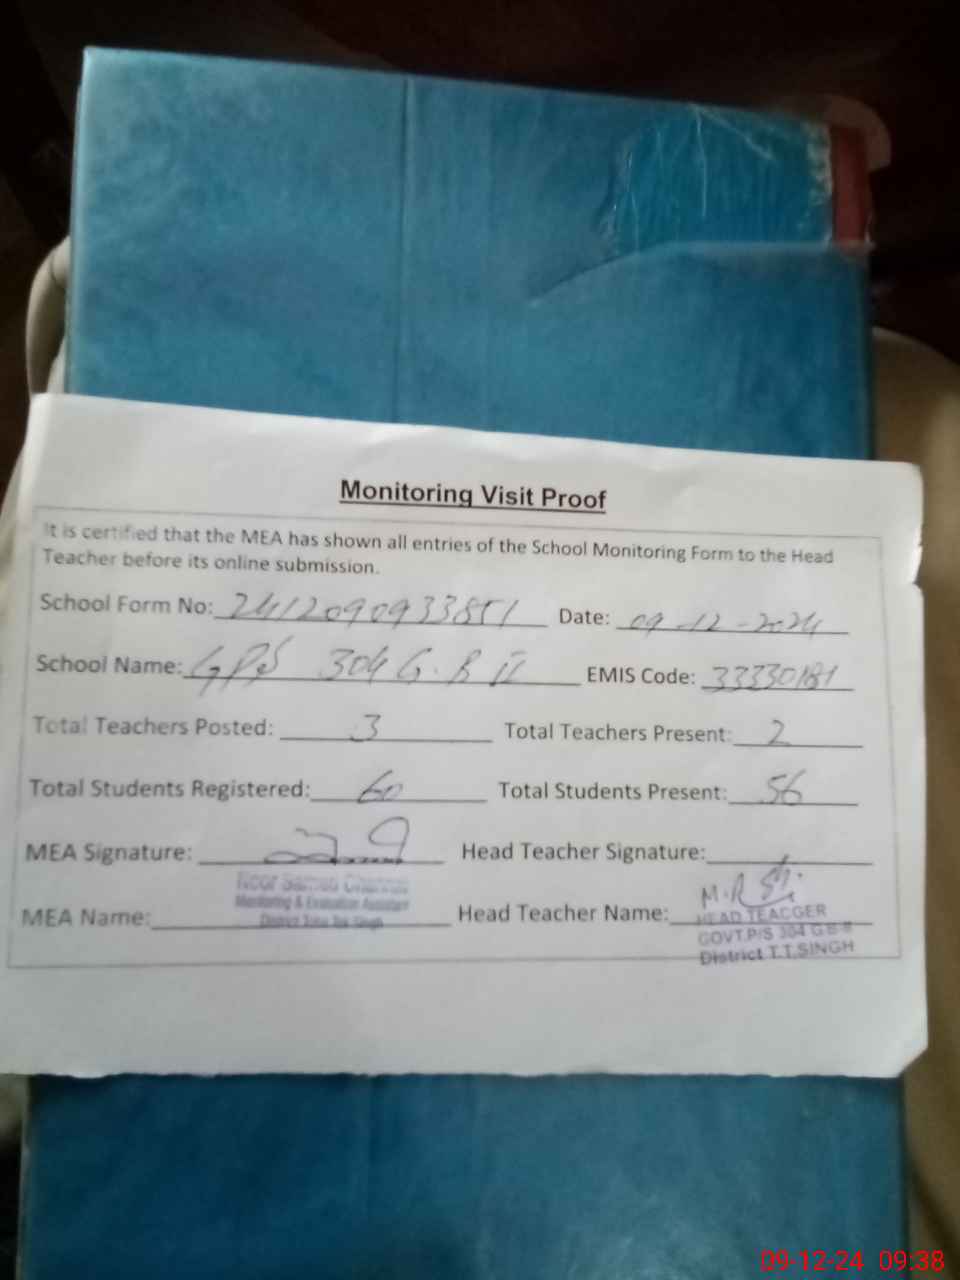 Monitoring Visit Proof
It is certified that the MEA has shown all entries of the School Monitoring Form to the Head
Teacher before its online submission.
School Form No: 2412090933851 Date: 09-12-2024
School Name: GPS 304 G.B II EMIS Code: 33330181
Total Teachers Posted: 3 Total Teachers Present: 2
Total Students Registered: 60 Total Students Present: 56
MEA Signature: Head Teacher Signature:
Monitoring & Evaluation Assistant
District Toba Tek Singh
MEA Name: Head Teacher Name:
HEAD TEACGER
GOVT.P/S 304 G.B II
District T.T.SINGH
09-12-24 09:38